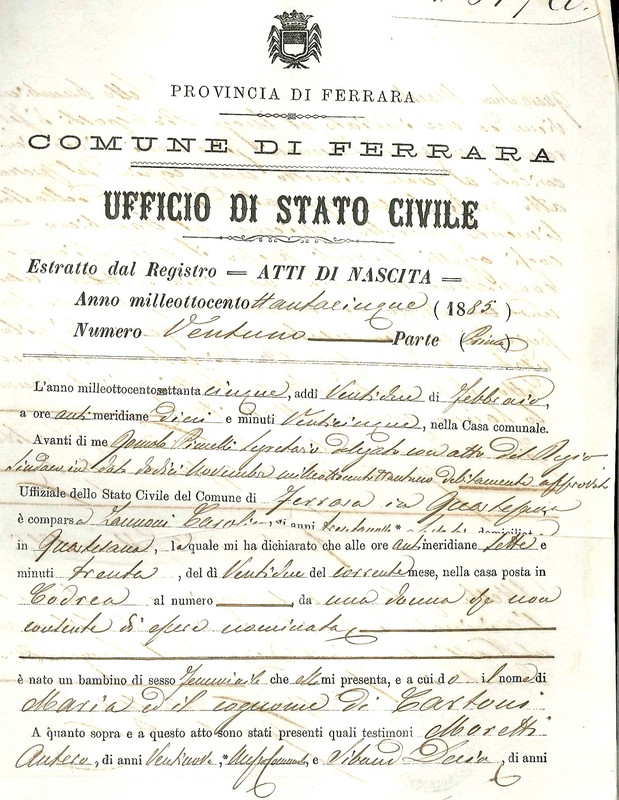 PROVINCIA DI FERRARA
COMUNE DI FERRARA
UFFICIO DI STATO CIVILE
Estratto dal Registro = ATTI DI NASCITA =
Anno milleottocento ttantacinque (1885)
Numero Ventuno Parte (Prima)
L'anno milleottocentosettanta cinque, addì Ventidue di febbraio,
a ore antimeridiane dieci e minuti Venticinque, nella Casa comunale.
Avanti di me Romolo segretario delegato con atto del Regio
Sindaco in data dodici Novembre milleottocentottantuno debitamente approvato
Uffiziale dello Stato Civile del Comune di Ferrara in Quartesana
è comparsa Zannoni, di anni
in Quartesana, la quale mi ha dichiarato che alle ore antimeridiane sette e
minuti trenta, del dì Ventidue del corrente mese, nella casa posta in
Codrea al numero, da una donna che non
contente di essere nominata
è nato un bambino di sesso femminile che mi presenta, e a cui do il nome di
Maria ed il cognome di Cartoni
A quanto sopra e a questo atto sono stati presenti quali testimoni Moretti
Antero, di anni Ventinove, e, di anni